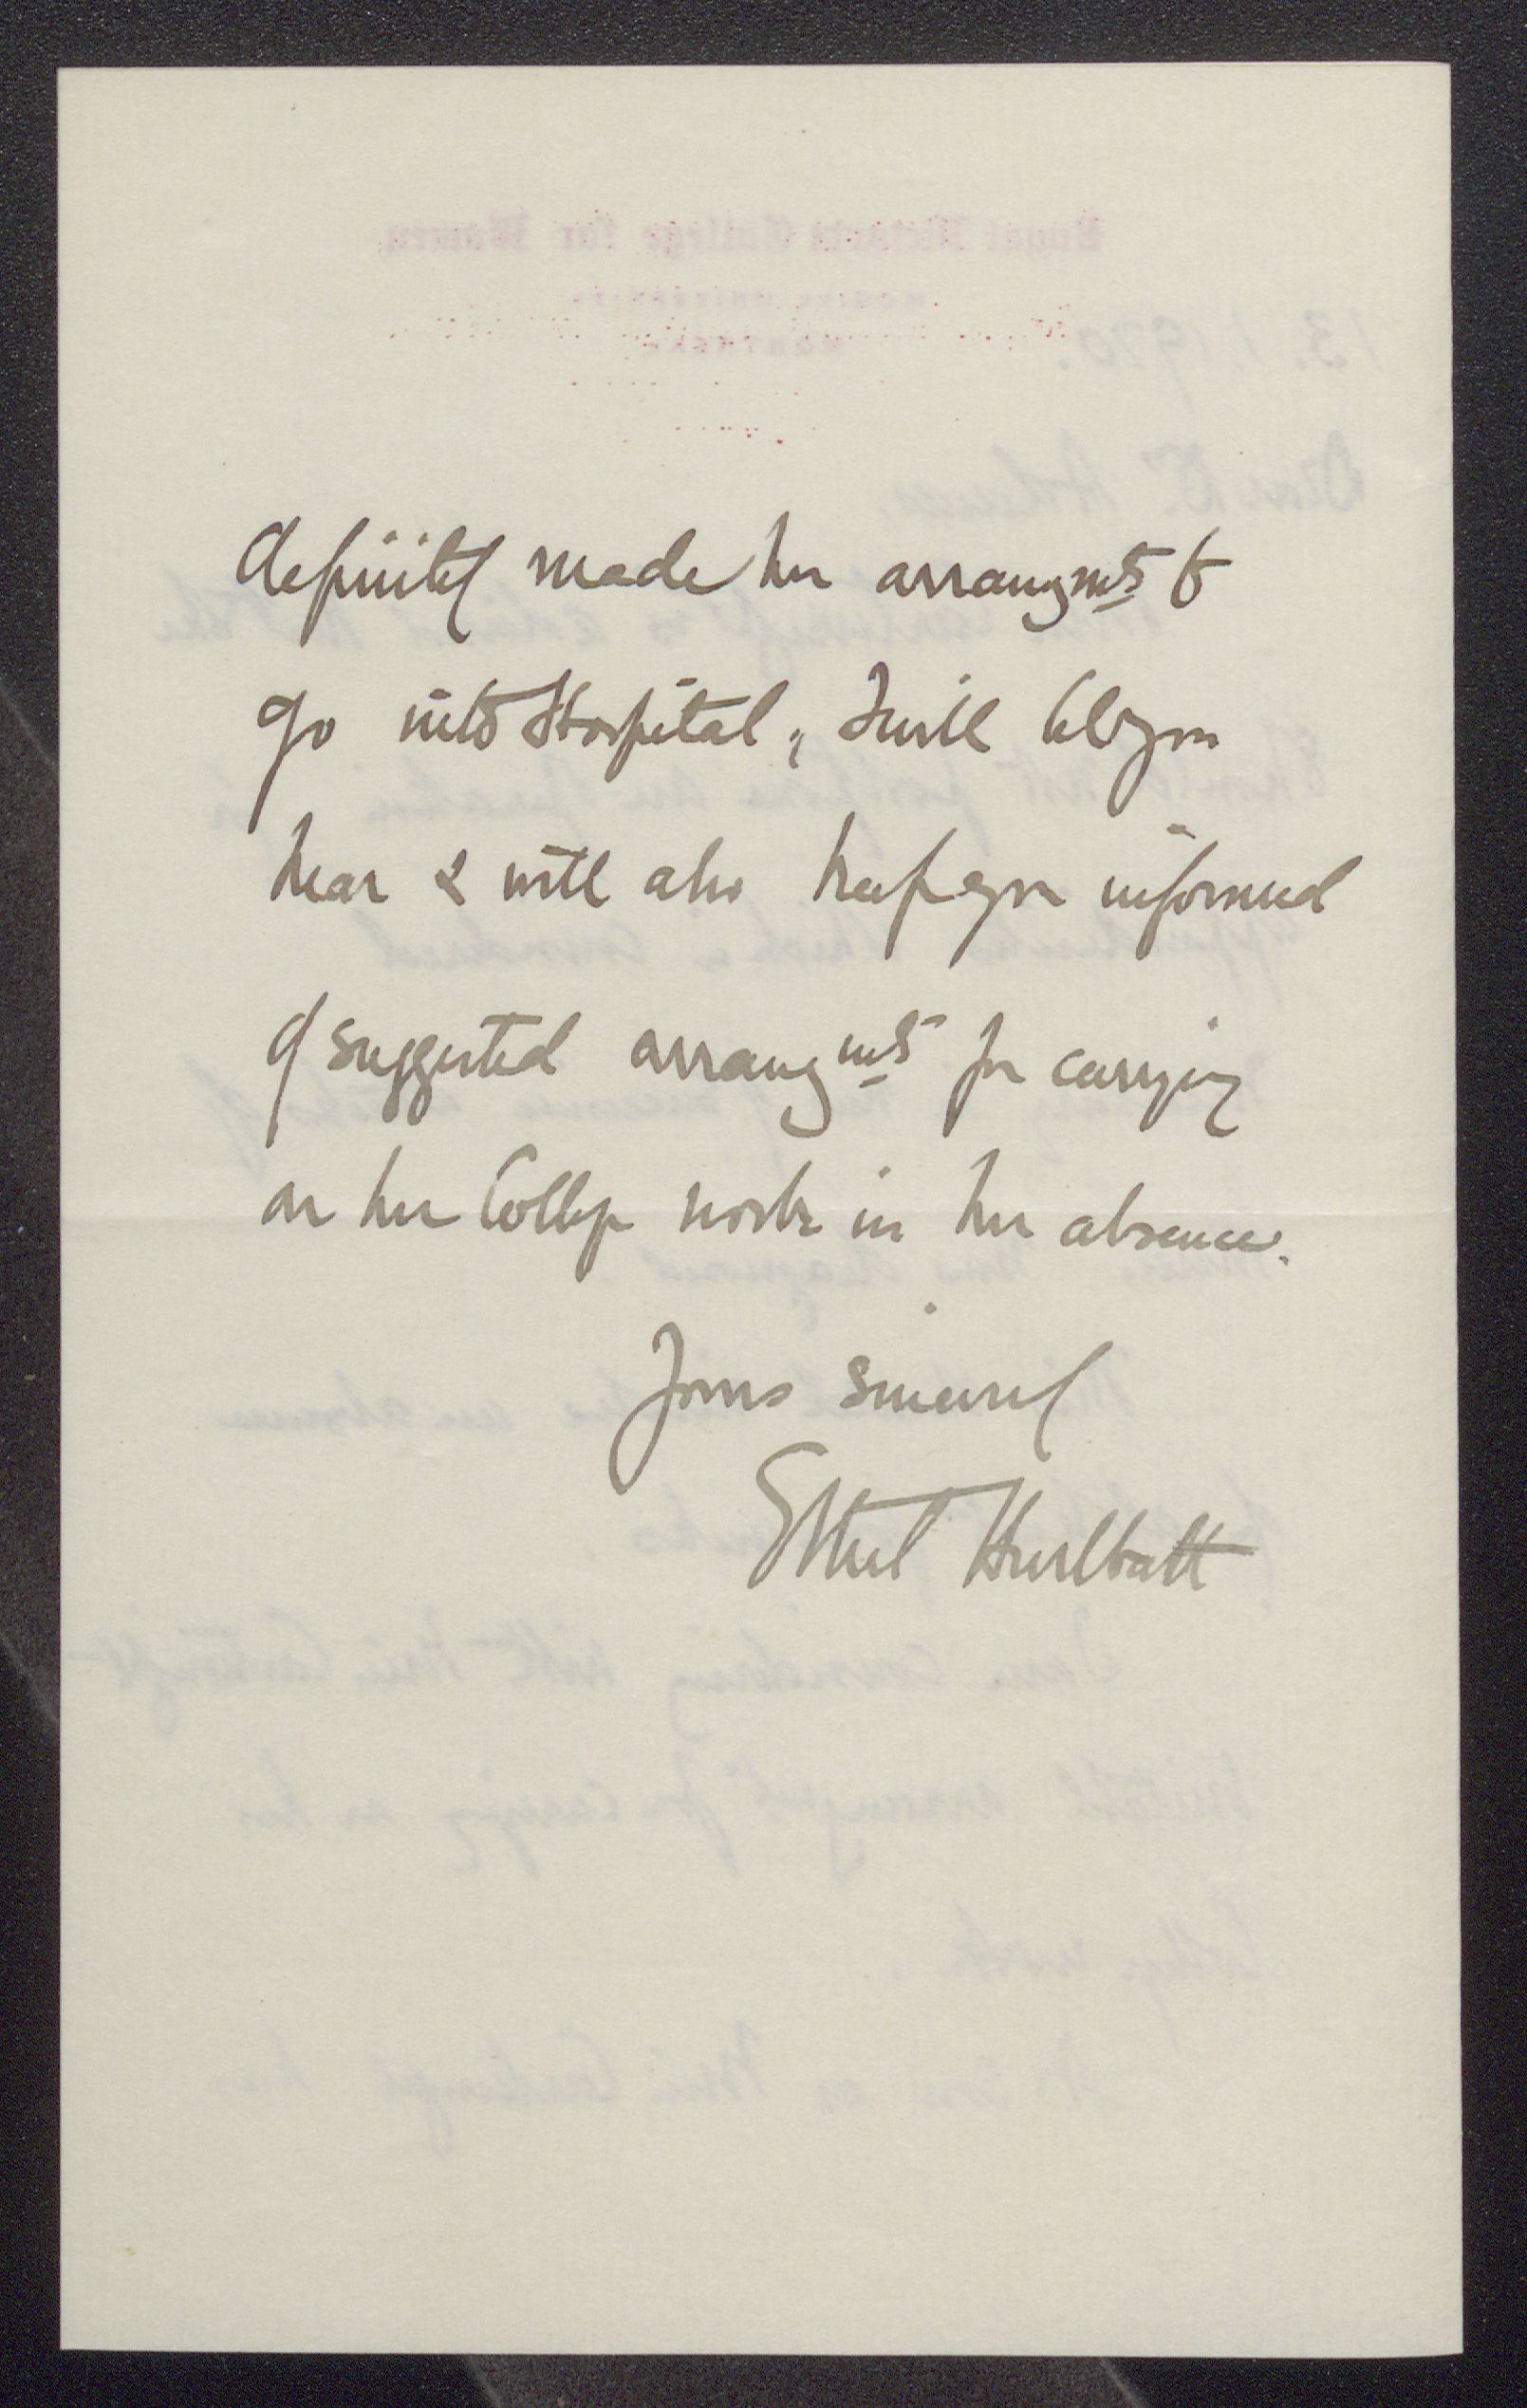 definitely made her arrangmts to
go into Hospital, I will let you
hear & will also keep you informed
of suggested arrangmts for carrying
on her College work in her absence.
Yours sincerely
Ethel Hurlbatt